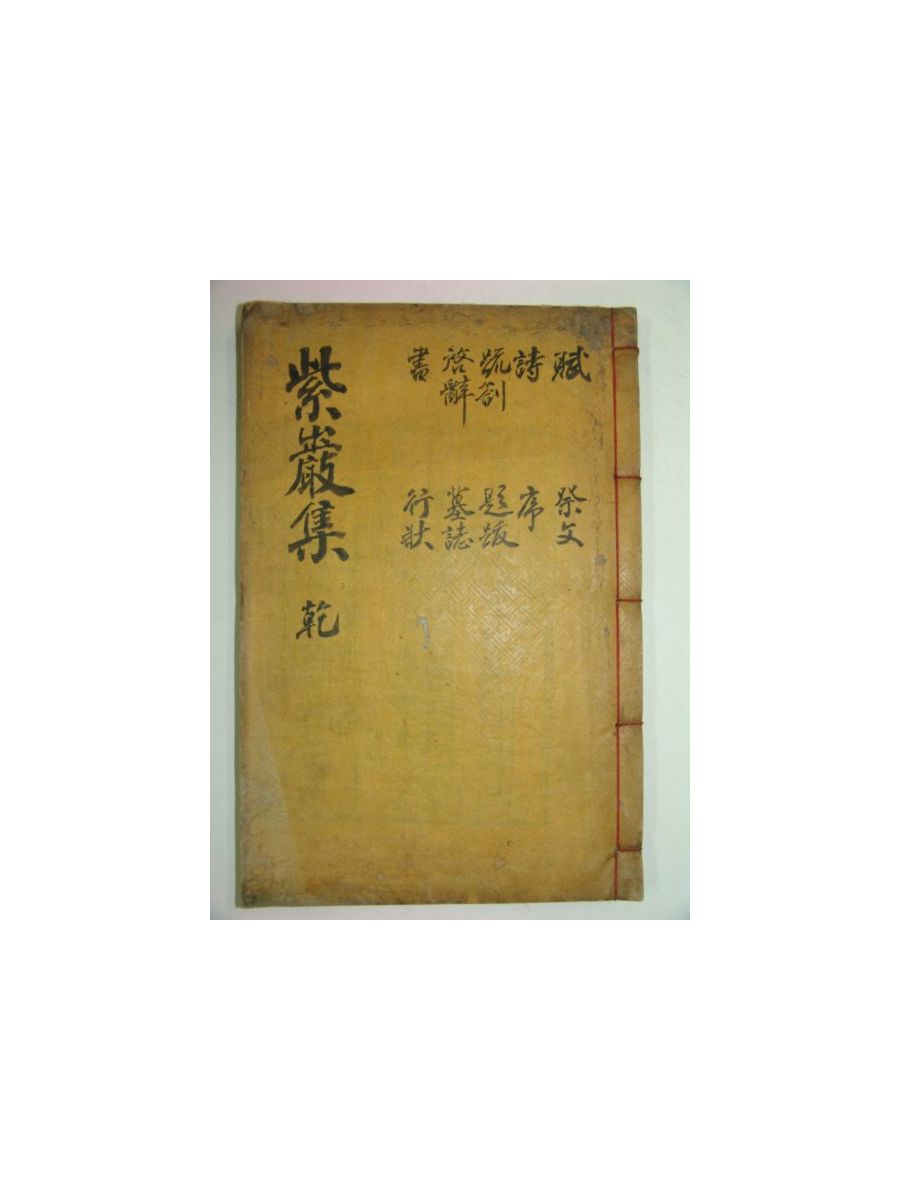 賦
詩
疏箚
啓辭
書
祭文
序
題跋
墓誌
行狀
紫巖集 乾